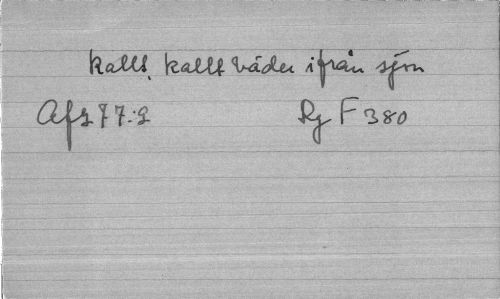 kallt, kallt väder ifrån sjön
Afz 77:2
Rg F 380